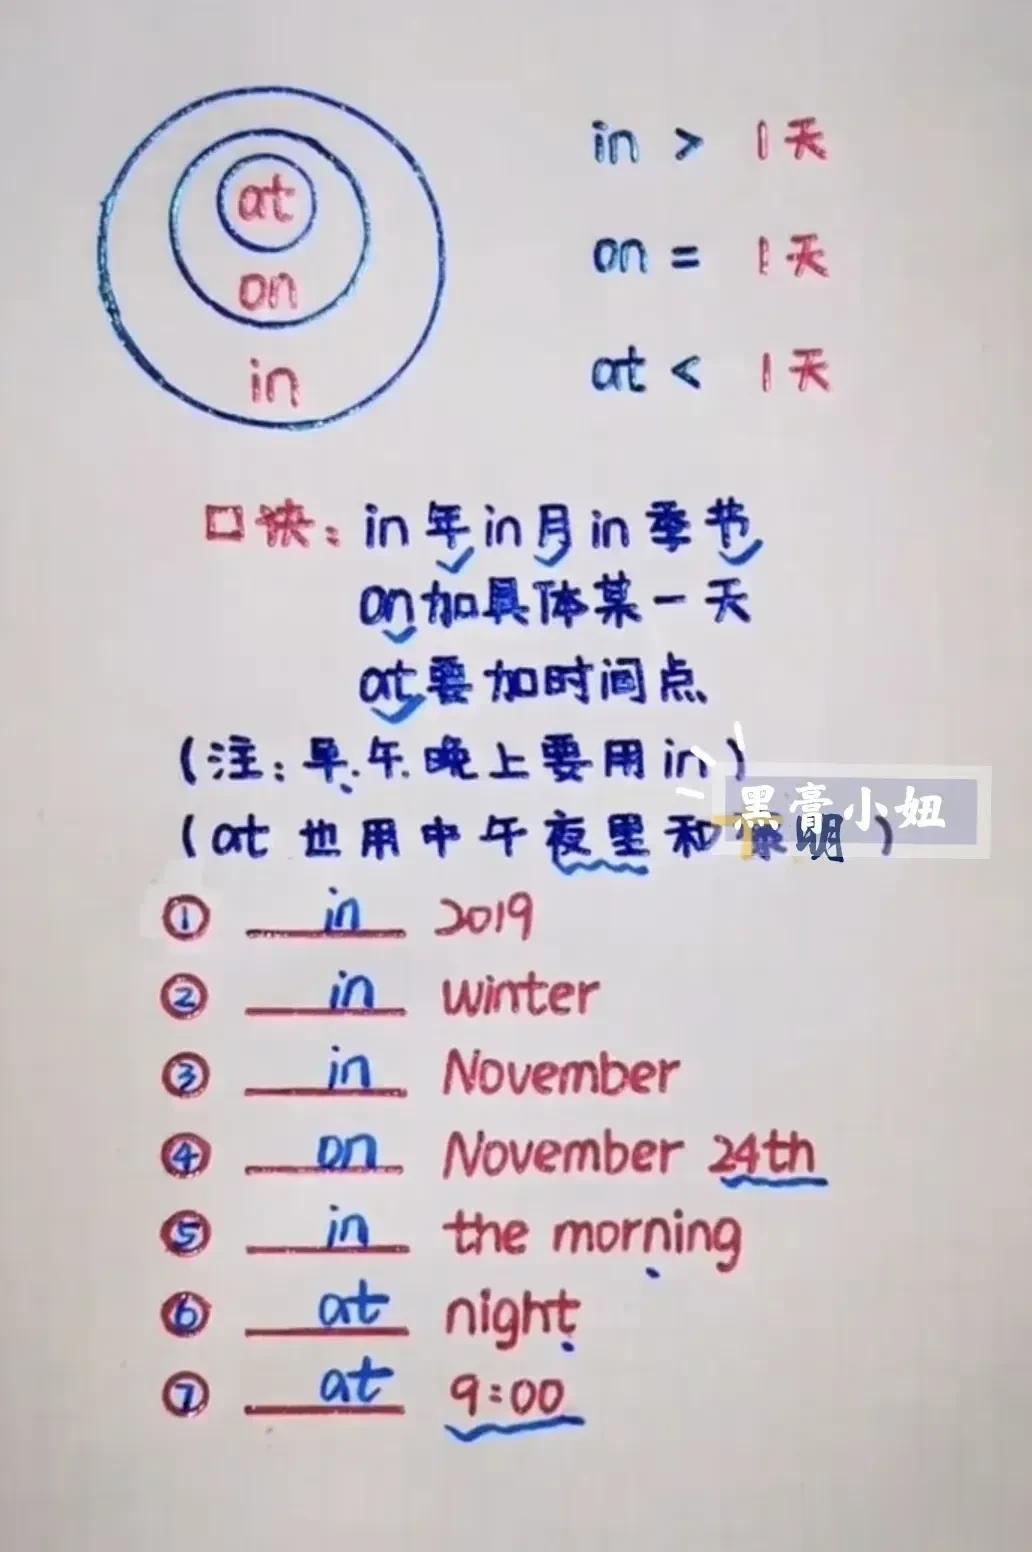 at
on
in
in > 1天
on = 1天
at < 1天
口诀: in年in月in季节
on加具体某一天
at要加时间点
(注:早.午.晚上要用in)
(at也用中午夜里和 明)
黑膏小妞
① in 2019
② in winter
③ in November
④ on November 24th
⑤ in the morning
⑥ at night
⑦ at 9:00